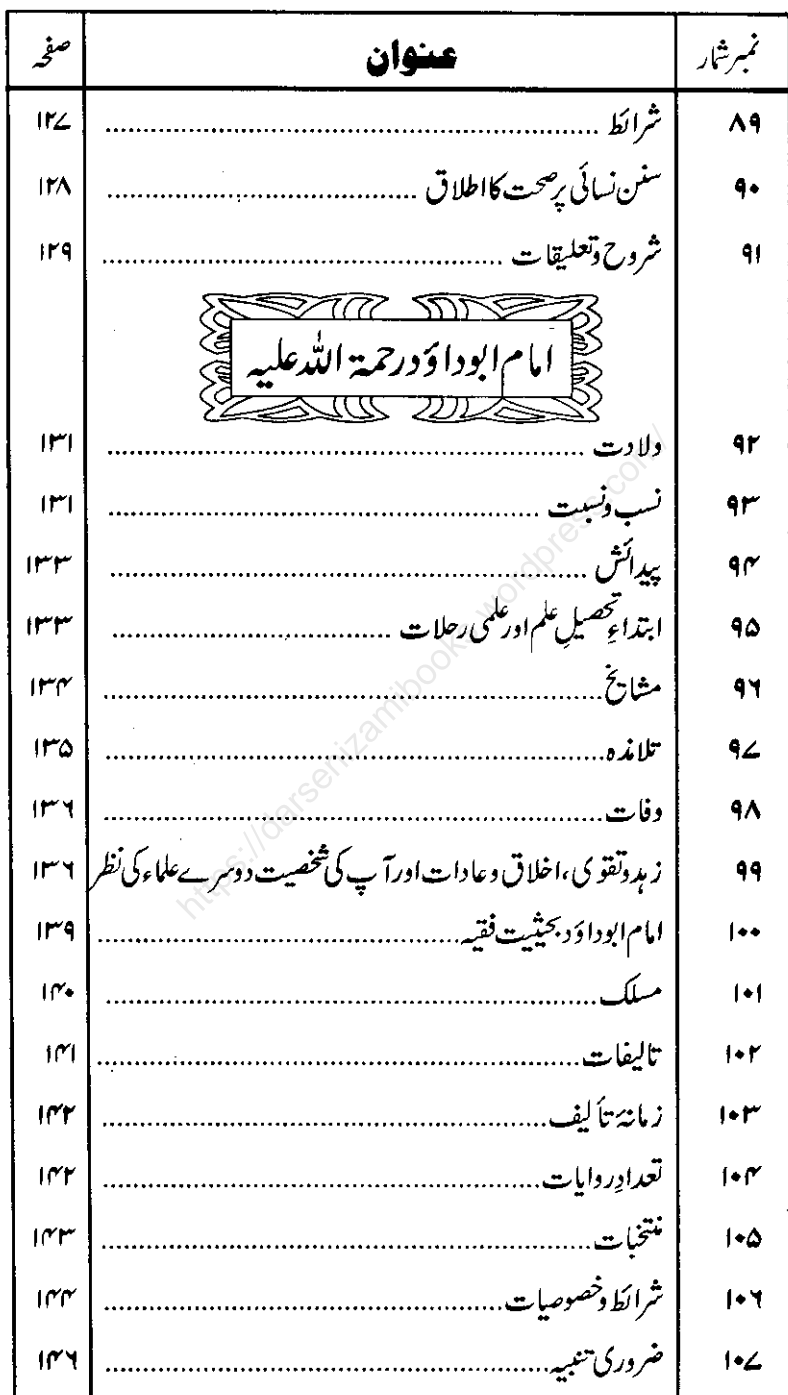 نمبر شمار عنوان صفحہ
۸۹ شرائط ........ ۱۲۷
۹۰ سنن نسائی پر صحت کا اطلاق ........ ۱۲۸
۹۱ شروح و تعلیقات ........ ۱۲۹
امام ابوداؤد رحمۃ اللہ علیہ
۹۲ ولادت ........ ۱۳۱
۹۳ نسب و نسبت ........ ۱۳۱
۹۴ پیدائش ........ ۱۳۳
۹۵ ابتداءِ تحصیلِ علم اور علمی رحلات ........ ۱۳۳
۹۶ مشایخ ........ ۱۳۴
۹۷ تلامذہ ........ ۱۳۵
۹۸ وفات ........ ۱۳۶
۹۹ زہد و تقوی، اخلاق و عادات اور آپ کی شخصیت دوسرے علماء کی نظر ۱۳۶
۱۰۰ امام ابوداؤد بحیثیت فقیہ ........ ۱۳۹
۱۰۱ مسلک ........ ۱۴۰
۱۰۲ تالیفات ........ ۱۴۱
۱۰۳ زمانۂ تألیف ........ ۱۴۲
۱۰۴ تعدادِ روایات ........ ۱۴۲
۱۰۵ منتخبات ........ ۱۴۳
۱۰۶ شرائط و خصوصیات ........ ۱۴۴
۱۰۷ ضروری تنبیہ ........ ۱۴۶
https://darsenizamibooks.wordpress.com/